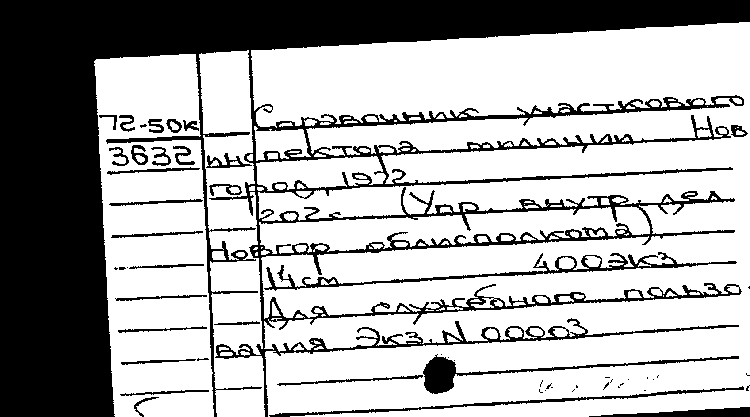 72-50к
3632
Справочник участкового
инспектора милиции. Нов
город, 1972.
202с. (Упр. внутр. дел
Новгор облисполкома).
14см 400экз
Для служебного пользо-
вания Экз. N 00003